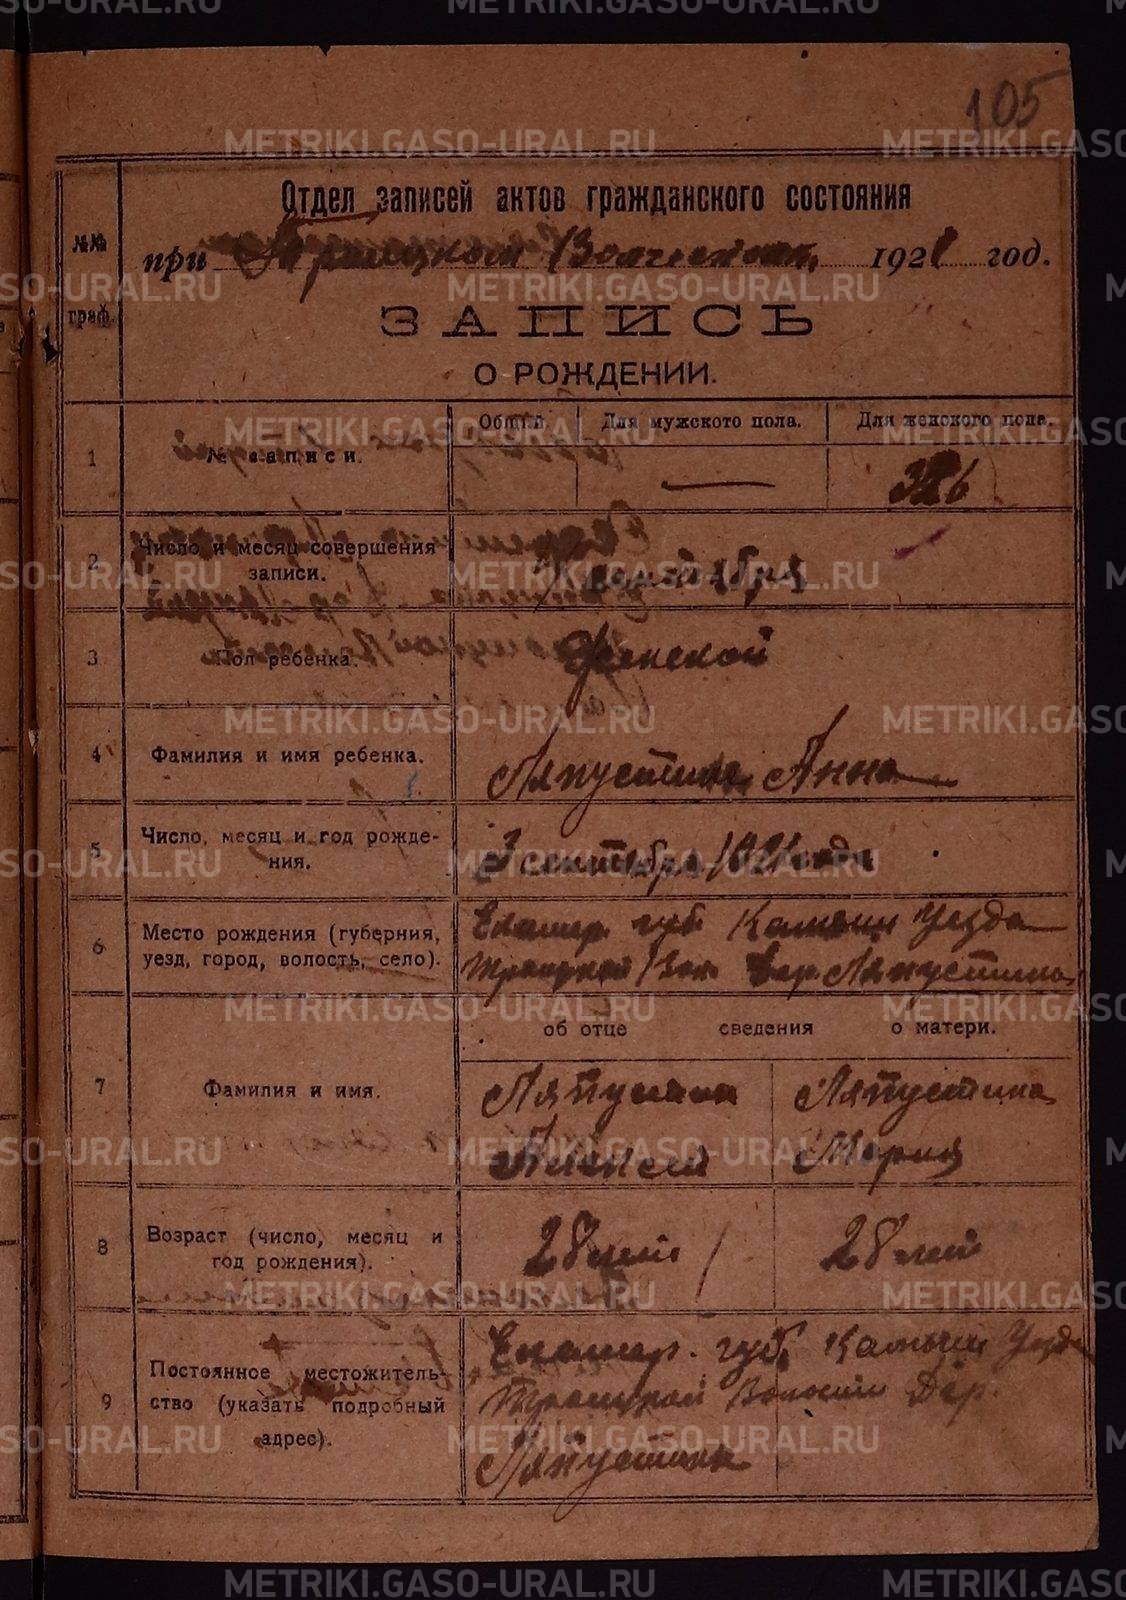 105
Отдел записей актов гражданского состояния
№№ граф.
при Троицком Волисполк. 1921 год.
ЗАПИСЬ
О РОЖДЕНИИ.
Общий. Для мужского пола. Для женского пола.
1 № записи. — 326
2 Число и месяц совершения
записи.
сентября
3 Пол ребенка. Женской
4 Фамилия и имя ребенка. Ляпустина Анна
5 Число, месяц и год рожде-
ния.
3 сентября 1921 года
6 Место рождения (губерния,
уезд, город, волость, село).
Екатер. губ Камышл Уезда
Троицкой Вол. Дер. Ляпустина
об отце сведения о матери.
7 Фамилия и имя.
Ляпустин
Алексей
Ляпустина
Мария
8 Возраст (число, месяц и
год рождения).
28 лет
28 лет
9 Постоянное местожитель-
ство (указать подробный
адрес).
Екатер. губ. Камышл Уезда
Троицкой Волости Дер.
Ляпустина
METRIKI.GASO-URAL.RU